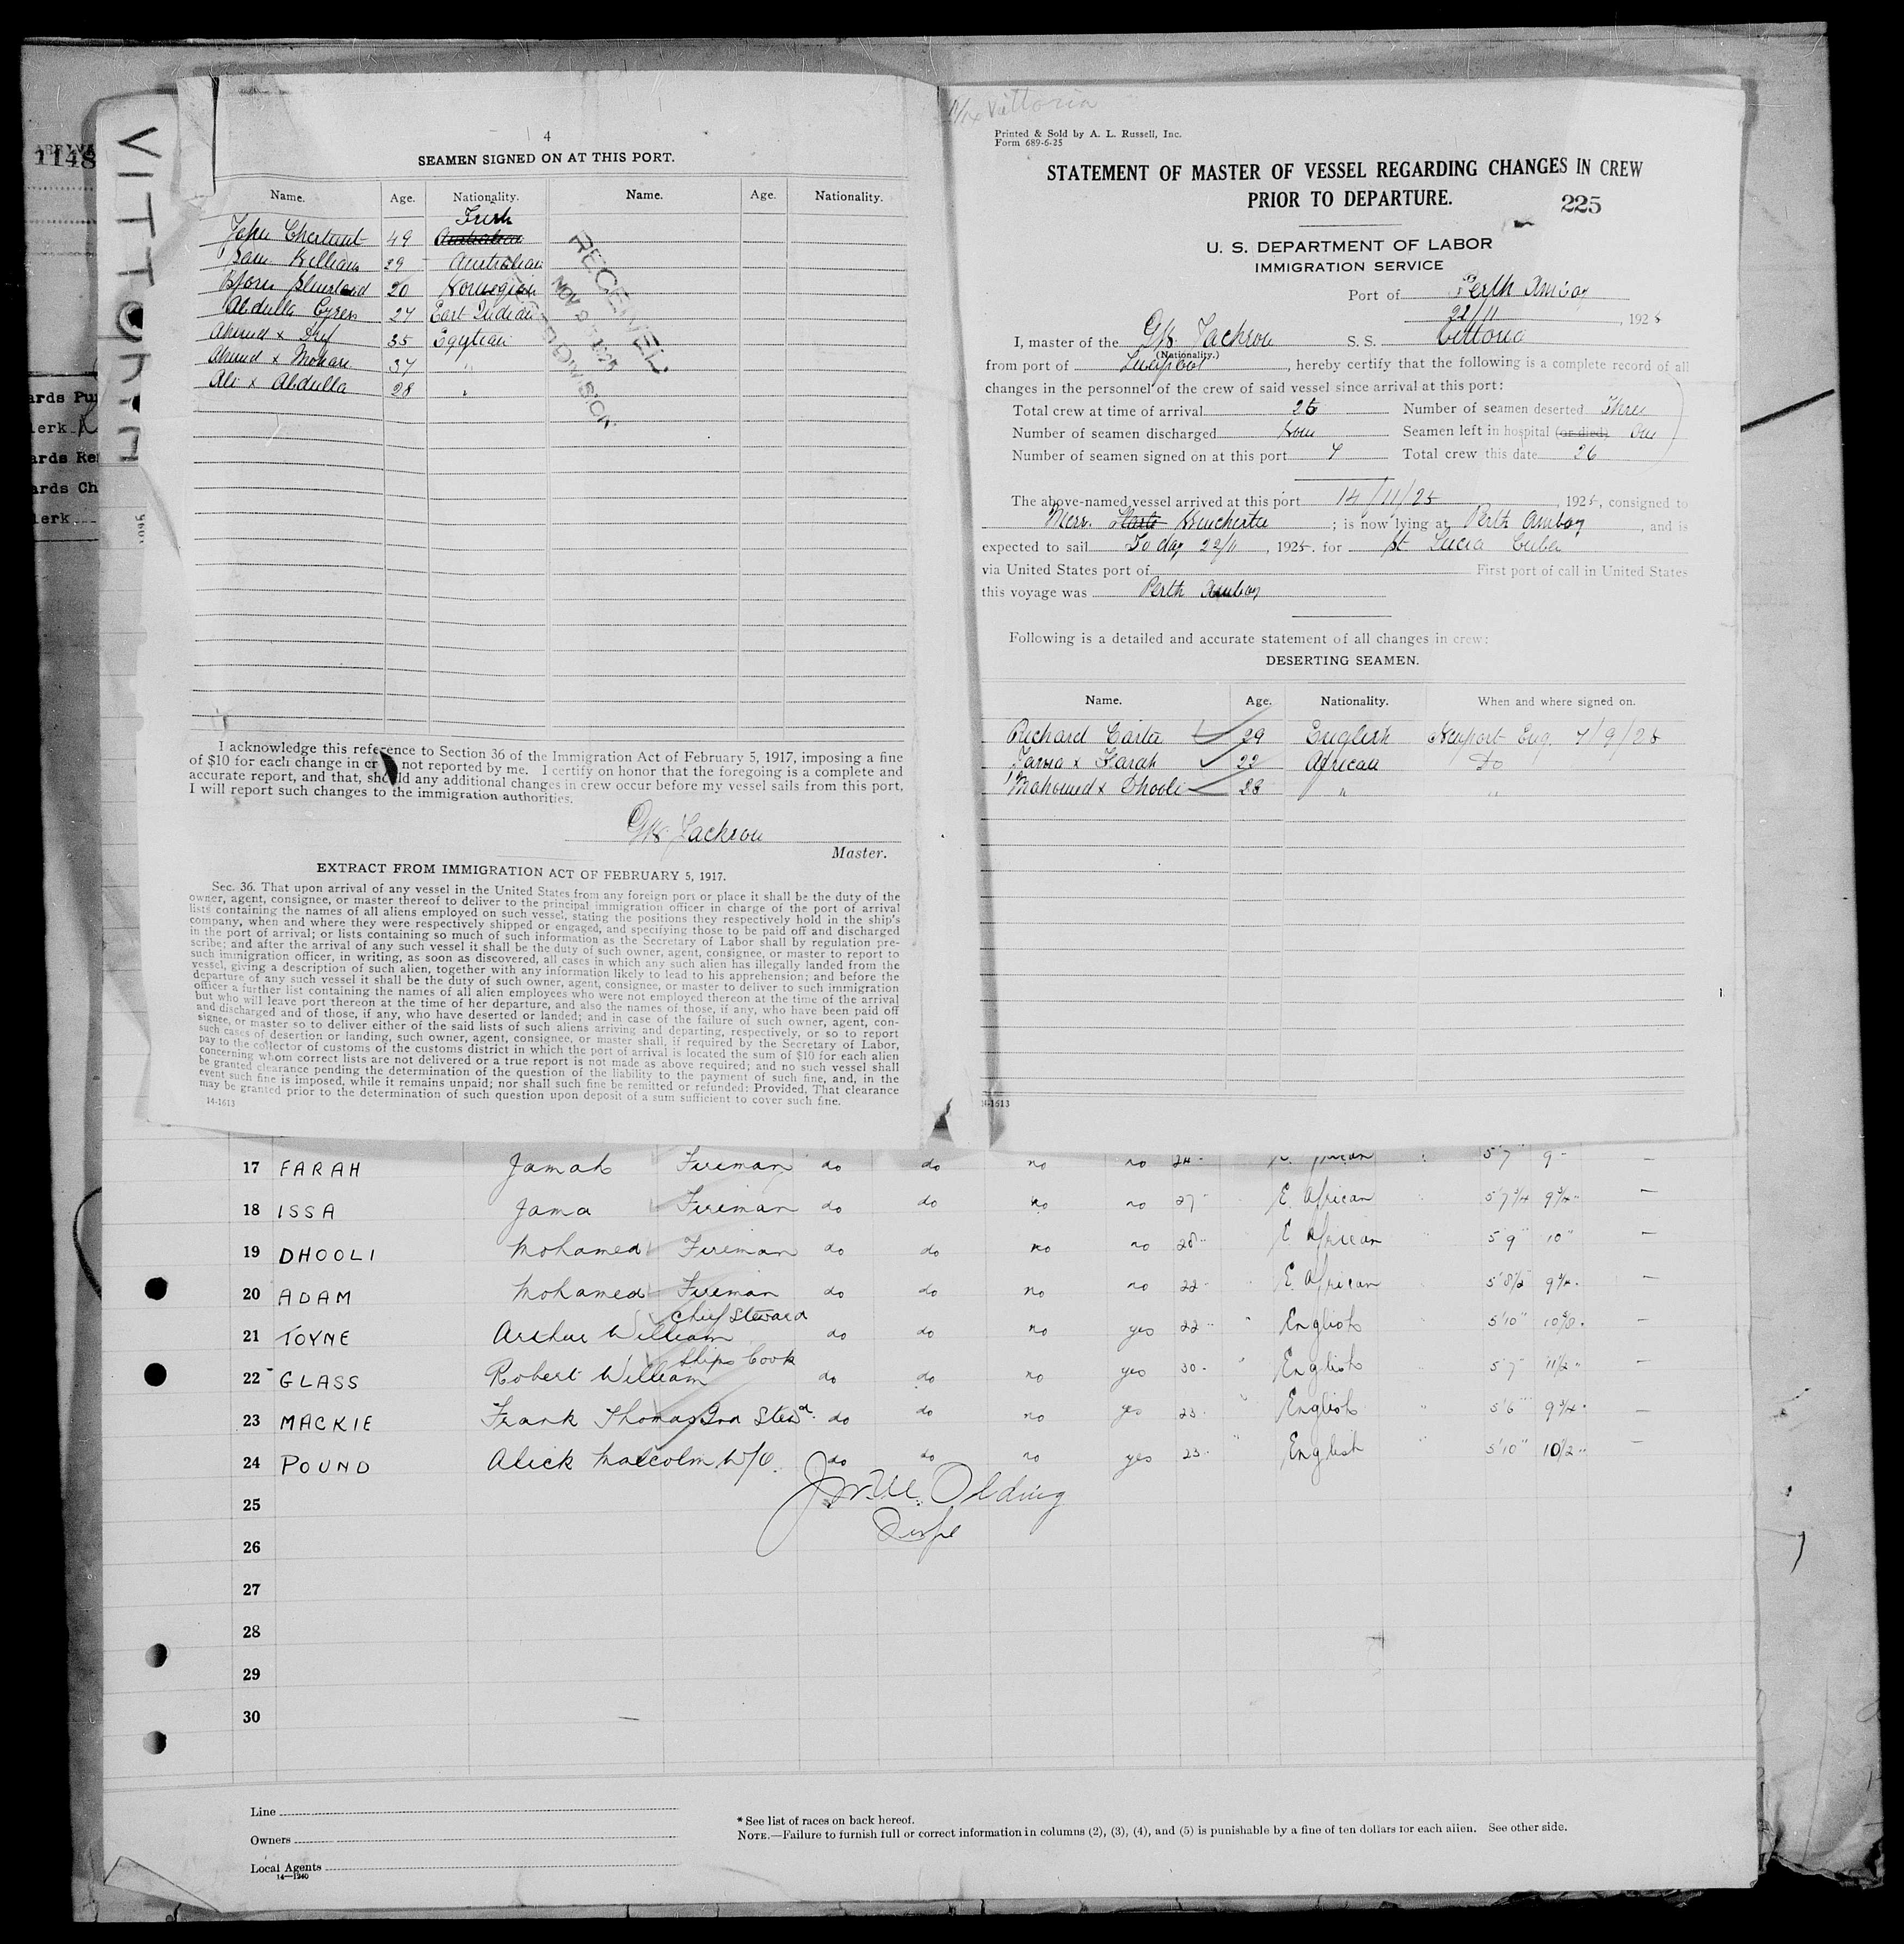 1148
ards Pu
lerk
ards Re
ards Ch
lerk
VITTORIA
4
SEAMEN SIGNED ON AT THIS PORT.
Name. Age. Nationality. Name. Age. Nationality.
Irish
John Chestnut 49 Australian
Sam William 29 Australian
20 Norwegian
Abdulla 27 East Indian
Ahmed x 35 Egytian
Ahmed x 37 "
Ali x Abdulla 28 "
RECEIVED
NOV
DIVISION
I acknowledge this reference to Section 36 of the Immigration Act of February 5, 1917, imposing a fine
of $10 for each change in cr not reported by me. I certify on honor that the foregoing is a complete and
accurate report, and that, should any additional changes in crew occur before my vessel sails from this port,
I will report such changes to the immigration authorities.
Jackson
Master.
EXTRACT FROM IMMIGRATION ACT OF FEBRUARY 5, 1917.
Sec. 36. That upon arrival of any vessel in the United States from any foreign port or place it shall be the duty of the
owner, agent, consignee, or master thereof to deliver to the principal immigration officer in charge of the port of arrival
lists containing the names of all aliens employed on such vessel, stating the positions they respectively hold in the ship's
company, when and where they were respectively shipped or engaged, and specifying those to be paid off and discharged
in the port of arrival; or lists containing so much of such information as the Secretary of Labor shall by regulation pre-
scribe; and after the arrival of any such vessel it shall be the duty of such owner, agent, consignee, or master to report to
such immigration officer, in writing, as soon as discovered, all cases in which any such alien has illegally landed from the
vessel, giving a description of such alien, together with any information likely to lead to his apprehension; and before the
departure of any such vessel it shall be the duty of such owner, agent, consignee, or master to deliver to such immigration
officer a further list containing the names of all alien employees who were not employed thereon at the time of the arrival
but who will leave port thereon at the time of her departure, and also the names of those, if any, who have been paid off
and discharged and of those, if any, who have deserted or landed; and in case of the failure of such owner, agent, con-
signee, or master so to deliver either of the said lists of such aliens arriving and departing, respectively, or so to report
such cases of desertion or landing, such owner, agent, consignee, or master shall, if required by the Secretary of Labor,
pay to the collector of customs of the customs district in which the port of arrival is located the sum of $10 for each alien
concerning whom correct lists are not delivered or a true report is not made as above required; and no such vessel shall
be granted clearance pending the determination of the question of the liability to the payment of such fine, and, in the
event such fine is imposed, while it remains unpaid; nor shall such fine be remitted or refunded: Provided, That clearance
may be granted prior to the determination of such question upon deposit of a sum sufficient to cover such fine.
14-1613
Vittoria
Printed & Sold by A. L. Russell, Inc.
Form 689-6-25
STATEMENT OF MASTER OF VESSEL REGARDING CHANGES IN CREW
PRIOR TO DEPARTURE.
225
U. S. DEPARTMENT OF LABOR
IMMIGRATION SERVICE
Port of Perth Amboy
22/11, 1925
I, master of the Jackson S. S. Vittoria
(Nationality.)
from port of Liverpool, hereby certify that the following is a complete record of all
changes in the personnel of the crew of said vessel since arrival at this port:
Total crew at time of arrival 26 Number of seamen deserted Three
Number of seamen discharged None Seamen left in hospital (or died) One
Number of seamen signed on at this port 7 Total crew this date 26
The above-named vessel arrived at this port 14/11/25, 1925, consigned to
Messr. ; is now lying at Perth Amboy, and is
expected to sail Today 22/11, 1925. for St Lucia Cuba
via United States port of First port of call in United States
this voyage was Perth Amboy
Following is a detailed and accurate statement of all changes in crew:
DESERTING SEAMEN.
Name. Age. Nationality. When and where signed on.
Richard Carter 29 English Newport Eng. 7/9/25
Jama x Farah 22 African Do
Mahomed x Dhooli 28 " "
14-1613
17 FARAH Jamah Fireman do do no no 24 African 5'7 9
18 ISSA Jama Fireman do do no no 27 E. African 5'7 3/4 9 3/4
19 DHOOLI Mohamed Fireman do do no no 28 E. African 5'9 10
20 ADAM Mohamed Fireman do do no no 22 E. African 5'8 1/2 9 3/4
21 TOYNE Arthur William Chief Steward do do no yes 22 " English 5'10"
22 GLASS Robert William Ships Cook do do no yes 30 " English 5'7 11 1/2
23 MACKIE Frank Thomas 2nd Stewd. do do no yes 23 " English " 5'6 9 3/4
24 POUND Alick Malcolm W/O. do do no yes 23 " English " 5'10" 10 1/2
25
Olding
26
27
28
29
30
Line
Owners
Local Agents
14—1240
* See list of races on back hereof.
NOTE.—Failure to furnish full or correct information in columns (2), (3), (4), and (5) is punishable by a fine of ten dollars for each alien. See other side.